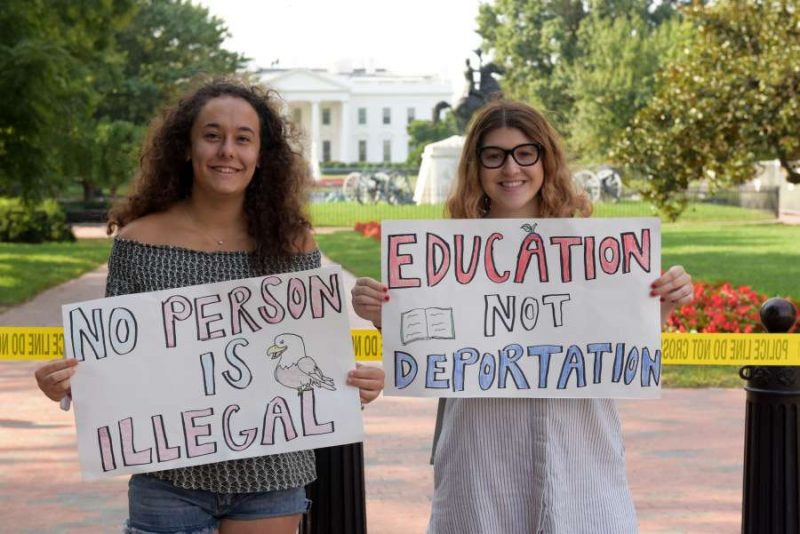 NO PERSON
IS
ILLEGAL
EDUCATION
NOT
DEPORTATION
POLICE LINE DO NOT CROSS